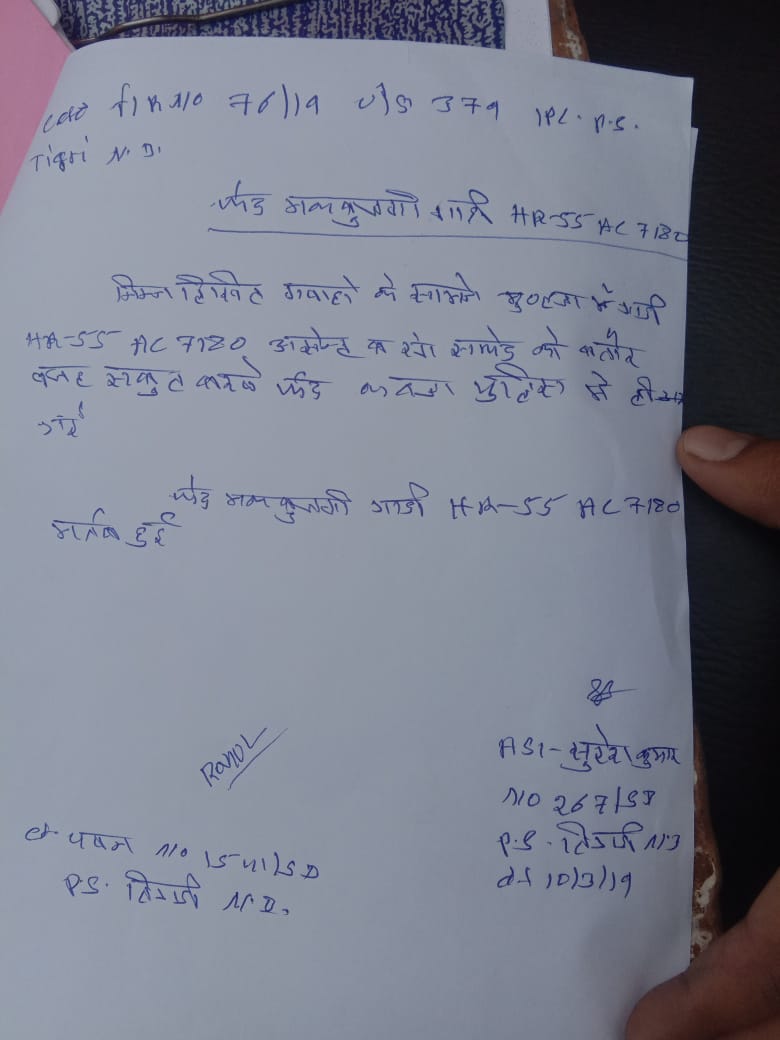 FIR NO 76/19 U/S 379 IPC. P.S.
Tigri N.D.
फर्द मकबुजगी गाडी HR-55 AC 7180
निम्न लिखित गवाहो के सामने मुकदमा में गाडी
HR-55 AC 7180 को बतौर
वजह सबुत करके फर्द कब्जा पुलिस मे ली
गई
फर्द मकबुजगी गाडी HR-55 AC 7180
मर्तब हुई
RAHUL
ASI- सुरेश कुमार
NO 267/SD
P.S. तिगडी N.D
dt 10/3/19
ct पवन NO 1541/SD
P.S. तिगडी N.D.